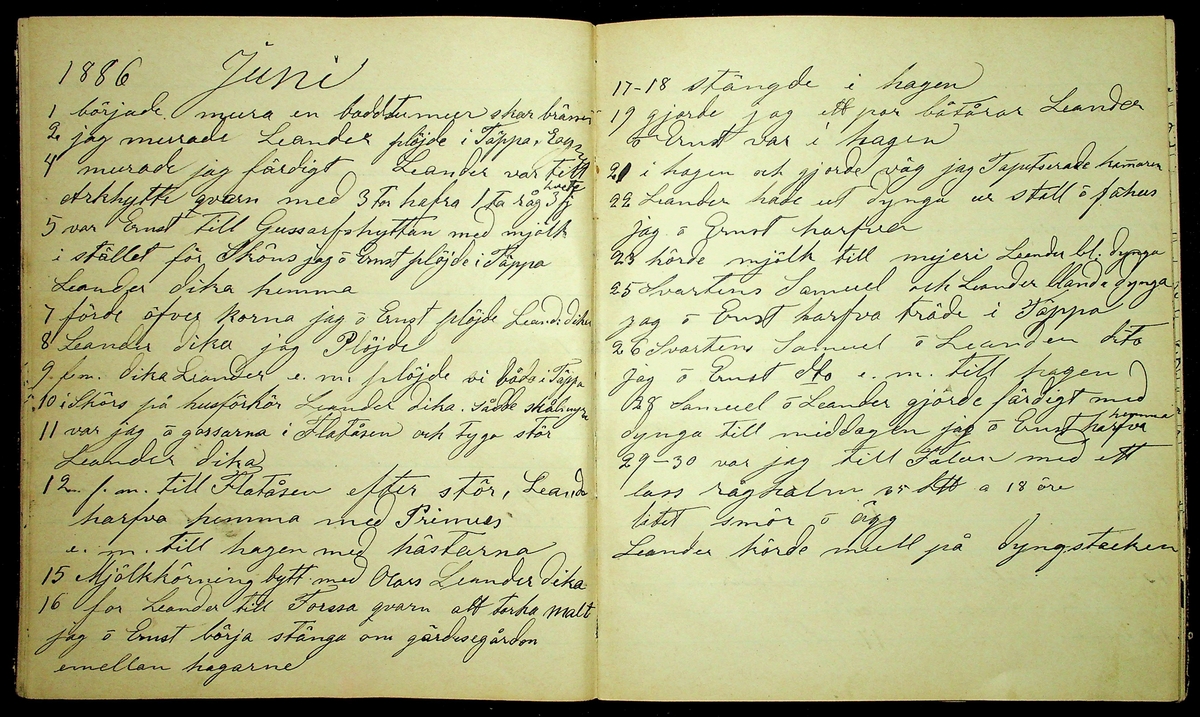 1886 Juni
1 började mura en mur skar
2 jag murade Leander plöjde i Täppa,
4 murade jag färdigt Leander var till
qvarn med 3 tor hafra 1 ta råg 3 f hvete
5 var Ernst till Gussarfshyttan med mjölk
i stället för Sköns jag ō Ernst plöjde i Täppa
Leander dika hemma
7 förde öfver korna jag ō Ernst plöjde Leand: dika
8 Leander dika jag Plöjde
9. f.m. dika Leander e. m. plöjde vi båda i Täppa
10 i Skörs på husförhör Leander dika.
11 var jag ō gossarna i Flatåsen och tygo stör
Leander dika
12 f. m. till Flatåsen efter stör, Leand
harfva hemma med Primus
e. m. till hagen med hästarna
15 Mjölkkörning bytt med Olars Leander dika
16 for Leander till Forssa qvarn att torka malt
jag ō Ernst börja stänga om gärdesegården
emellan hagarne
17-18 stängde i hagen
19 gjorde jag ett par båtårar Leander
ō Ernst var i hagen
21 i hagen och gjorde väg jag Taputserade kamaren
22 Leander hade ut dynga ur stall ō fähus
jag ō Ernst harfva
23 körde mjölk till mejeri Leander bl: dynga
25 Svartens Samuel och Leander blanda dynga
jag ō Ernst harfva träde i Täppa
26 Svartens Samuel ō Leander dito
jag ō Ernst dto e. m. till hagen
28 Samuel ō Leander gjorde färdigt med
dynga till middagen jag ō Ernst harfva hemma
29-30 var jag till Falun med ett
lass råghalm 65 a 18 öre
litet smör ō ägg
Leander körde mull på dyngstacken